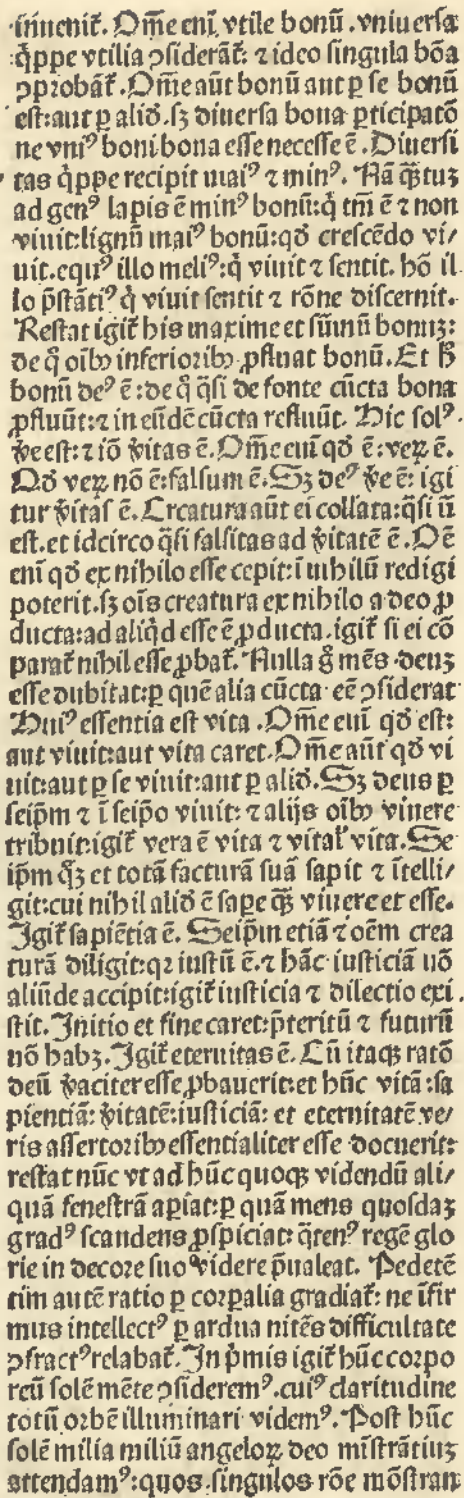 inuenit᷑. Om̄e eni̅ vtile bonū. vniuersa
q̇ppe vtilia ꝯsiderāt᷑: ⁊ ideo singula bōa
ꝯprobāt᷑. Om̄e aūt bonū aut ꝑ se bonū
est: aut ꝑ aliō. sꝫ diuersa bona ꝑticipatō
ne vniꝰ boni bona esse necesse ē. Diuersi
tas q̇ppe recipit maiꝰ ⁊ minꝰ. Nā q̄ꝫtuꝫ
ad genꝰ lapis ē minꝰ bonū: q̇ tm̄ ē ⁊ non
viuit: lignū maiꝰ bonū: qđ crescēdo vi/
uit. equꝰ illo meliꝰ: q̇ viuit ⁊ sentit. hō il
lo p̄stātiꝰ q̇ viuit sentit ⁊ rōne discernit.
Restat igit᷑ his maxime et sūmū bonuꝫ:
de q̊ oīb inferiorib ꝓfluat bonū. Et h̊
bonū deꝰ ē: de q̊ q̄si de fonte cūcta bona
ꝓfluūt: ⁊ in eūdē cūcta refluūt. Hic solꝰ
v̊e est: ⁊ iō v̊itas ē. Om̄e eni̅ qđ ē: veꝝ ē.
Qđ veꝝ nō ē: falsum ē. Sꝫ deꝰ v̊e ē: igi
tur v̊itas ē. Creatura aūt ei collata: q̄si ū
est. et idcirco q̄si falsitas ad v̊itatē ē. Oē
eni̅ qđ ex nihilo esse cepit: ī nihilū redigi
poterit. sꝫ oīs creatura ex nihilo a deo ꝓ
ducta: ad aliq̇d esse ē ꝓducta. igit᷑ si ei cō
parat᷑ nihil esse ꝓbat᷑. Nulla g̊ mēs deuꝫ
esse dubitat: ꝑ quē alia cūcta eē ꝯsiderat
Huiꝰ essentia est vita. Om̄e eni̅ qđ est:
aut viuit: aut vita caret. Om̄e aūt qđ vi
uit: aut ꝑ se viuit: aut ꝑ aliō. Sꝫ deus ꝑ
seip̄m ⁊ ī seip̄o viuit: ⁊ alijs oīb viuere
tribuit: igit᷑ vera ē vita ⁊ vital᷑ vita. Se
ip̄m qꝫ et totā facturā suā sapit ⁊ ītelli/
git: cui nihil aliō ē sape q̄ꝫ viuere et esse.
Igit᷑ sapiētia ē. Seip̄m etiā ⁊ oēm crea
turā diligit: qꝛ iustū ē. ⁊ hāc iusticiā nō
aliūde accipit: igit᷑ iusticia ⁊ dilectio exi
stit. Initio et fine caret: p̄teritū ⁊ futurū
nō habꝫ. Igit᷑ eternitas ē. Cū itaqꝫ ratō
deū v̊aciter esse ꝓbauerit: et hūc vitā: sa
pientiā: v̊itatē: iusticiā: et eternitatē ve/
ris assertorib essentialiter esse docuerit:
restat nūc vt ad hūc quoqꝫ videndū ali/
quā fenestrā aꝑiat: ꝑ quā mens quosdaꝫ
gradꝰ scandens ꝓspiciat: q̄tenꝰ regē glo
rie in decore suo videre p̄ualeat. Pedetē
tim autē ratio ꝑ corꝑalia gradiat᷑: ne īfir
mus intellectꝰ ꝑ ardua nitēs difficultate
ꝯfractꝰ relabat᷑. In p̄mis igit᷑ hūc corpo
reū solē mēte ꝯsideremꝰ. cuiꝰ claritudine
totū orbē illuminari videmꝰ. Post hūc
solē milia miliū angeloꝝ deo mīstrātiuꝫ
attendamꝰ: quos singulos rōe mōstran